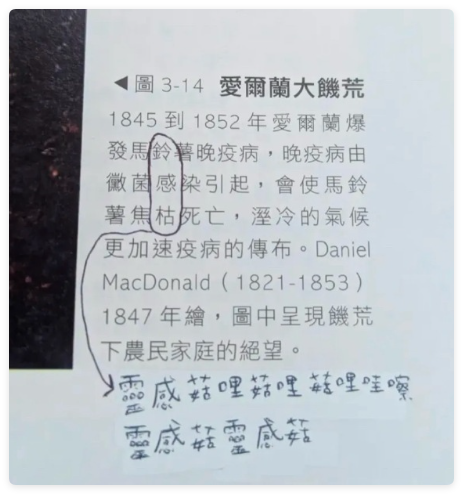 ◀圖 3-14 愛爾蘭大饑荒
1845 到 1852 年愛爾蘭爆
發馬鈴薯晚疫病，晚疫病由
黴菌感染引起，會使馬鈴
薯焦枯死亡，溼冷的氣候
更加速疫病的傳布。Daniel
MacDonald（1821-1853）
1847 年繪，圖中呈現饑荒
下農民家庭的絕望。
靈感菇哩菇哩菇哩哇嚓
靈感菇靈感菇